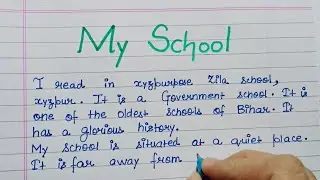 My School
I read in xyzpurpose Zila school,
xyzpur. It is a Government school. It is
one of the oldest schools of Bihar. It
has a glorious history.
My school is situated at a quiet place.
It is far away from